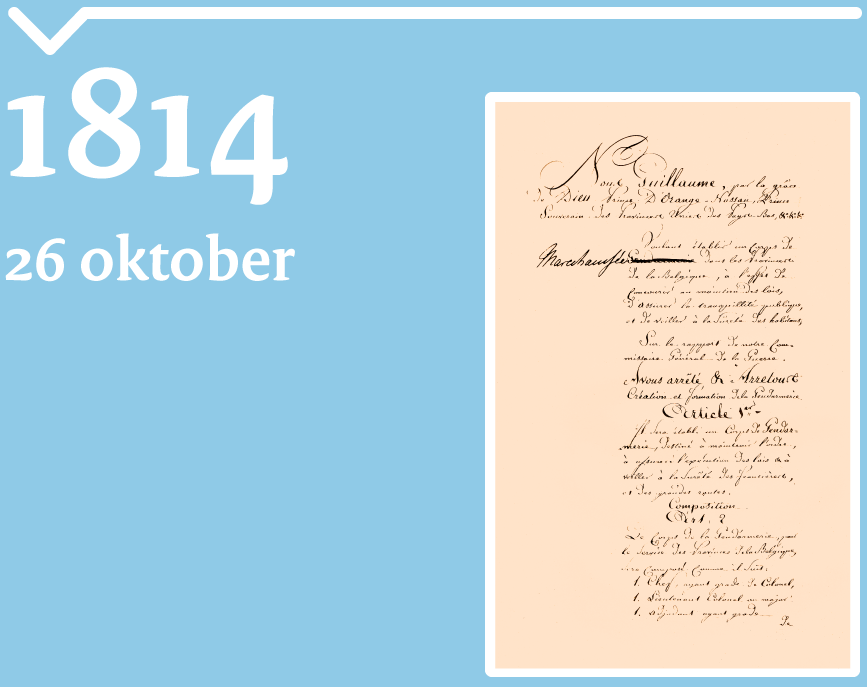 1814
26 oktober
Nous Guillaume, par la grâce
de Dieu Prince D'Orange-Nassau, Prince
Souverain des Provinces Unies des Pays-Bas, &c&c&c
Voulant établir un Corps de
Marechaussée dans les Provinces
de la Belgique, à l'effet de
concourir au maintien des lois,
d'assurer la tranquillité publique,
et de veiller à la sureté des habitans,
Sur le rapport de notre Com-
missaire Général de la Guerre.
Avons arrêté & Arretons
Création et formation de la Gendarmerie
Article 1er
Il sera établi un Corps de Gendar-
merie, destiné à maintenir l'ordre,
à assurer l'exécution des lois & à
veiller à la sureté des frontières,
et des grandes routes.
Composition
Art. 2
Le Corps de la Gendarmerie, pour
le service des Provinces de la Belgique,
sera composé comme il suit:
1. Chef ayant grade de Colonel,
1. Lieutenant Colonel ou major
1. adjudant ayant grade
de